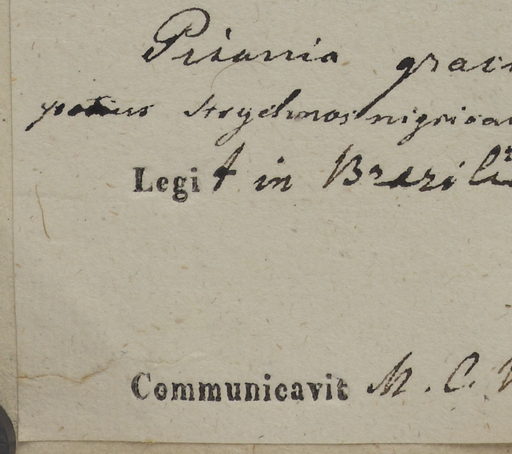 Pisania graci
potius Strychnos nigrica
Legit in Brazili
Communicavit M. C.